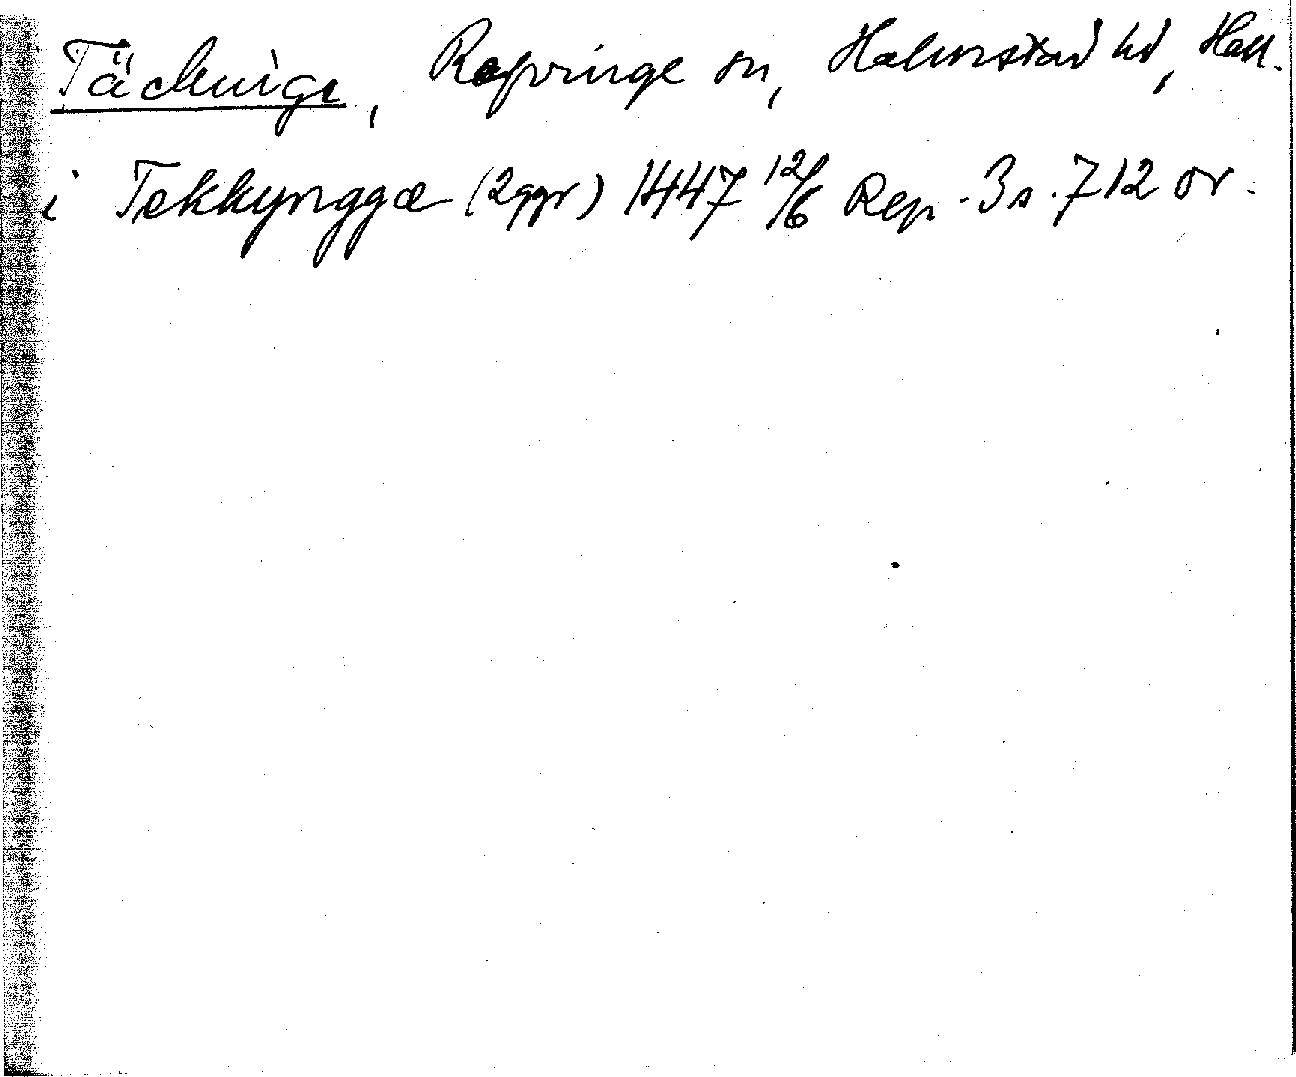 Täckinge, Refvinge sn, Halmstad hd, Hall.
i Tekkynggæ (2ggr) 1447 12/6 Rep. 3 s. 712 or.